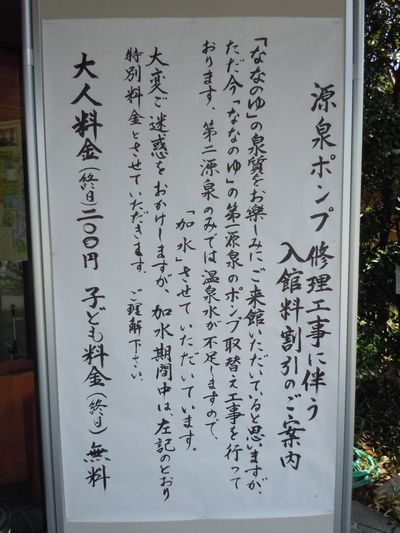 源泉ポンプ修理工事に伴う
入館料割引のご案内
「ななのゆ」の泉質をお楽しみにご来館いただいていると思いますが、
ただ今「ななのゆ」の第一源泉のポンプ取替え工事を行って
おります。第二源泉のみでは温泉水が不足しますので、
「加水」させていただいています。
大変ご迷惑をおかけしますが、加水期間中は、左記のとおり
特別料金とさせていただきます。ご理解下さい。
大人料金(終日)二〇〇円 子ども料金(終日)無料